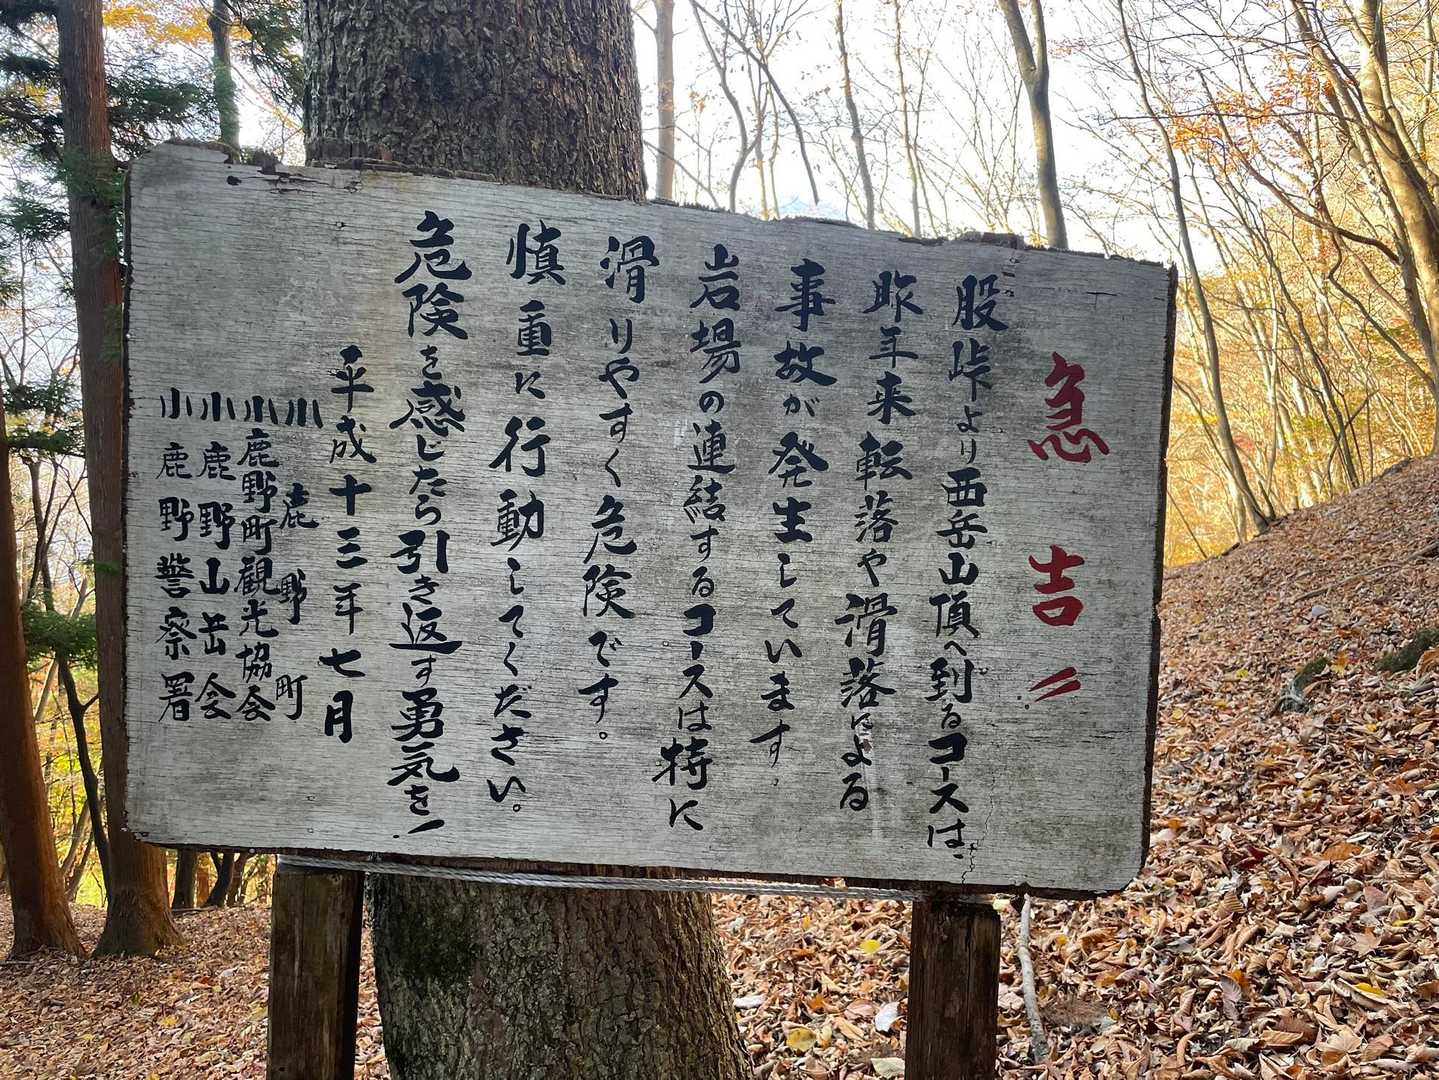 急告〃
股峠より西岳山頂へ到るコースは、
昨年来転落や滑落による
事故が発生しています。
岩場の連結するコースは特に
滑りやすく危険です。
慎重に行動してください。
危険を感じたら引き返す勇気を!
平成十三年七月
小鹿野町
小鹿野町観光協会
小鹿野山岳会
小鹿野警察署